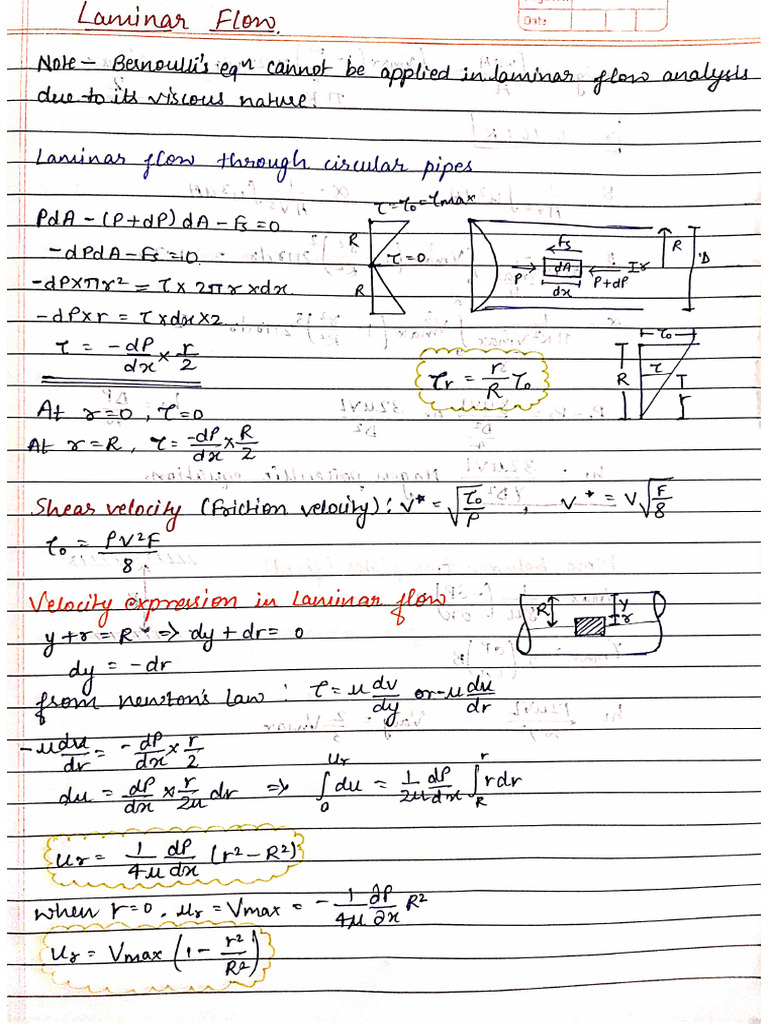 Date
Laminar Flow.
Note - Bernoulli's eqn cannot be applied in laminar flow analysis
due to its viscous nature.
Laminar flow through circular pipes
PdA - (P+dP) dA - Fs = 0
-dPdA - Fs = 0
-dP×πr² = τ × 2πr × dx
-dP×r = τ × dx × 2
τ = -dP/dx × r/2
τ = τ₀ = τmax
R
τ = 0
R
Fs
dA
P
dx
P+dP
r
R
D
τr = r/R τ₀
τ₀
R
τ
r
At r=0, τ=0
At r=R, τ = -dP/dx × R/2
Shear velocity (Friction velocity): V* = √(τ₀/ρ), V* = V√(F/8)
τ₀ = ρV²F/8
Velocity expression in Laminar flow
y+r = R => dy + dr = 0
dy = -dr
R
y
r
from newton's Law: τ = μ dv/dy or -μ du/dr
-μ du/dr = -dP/dx × r/2
du = dP/dx × r/2μ dr => ∫₀^ur du = 1/2μ dP/dx ∫_R^r r dr
ur = 1/4μ dP/dx (r² - R²)
when r=0, ur = Vmax = - 1/4μ ∂P/∂x R²
ur = Vmax (1 - r²/R²)